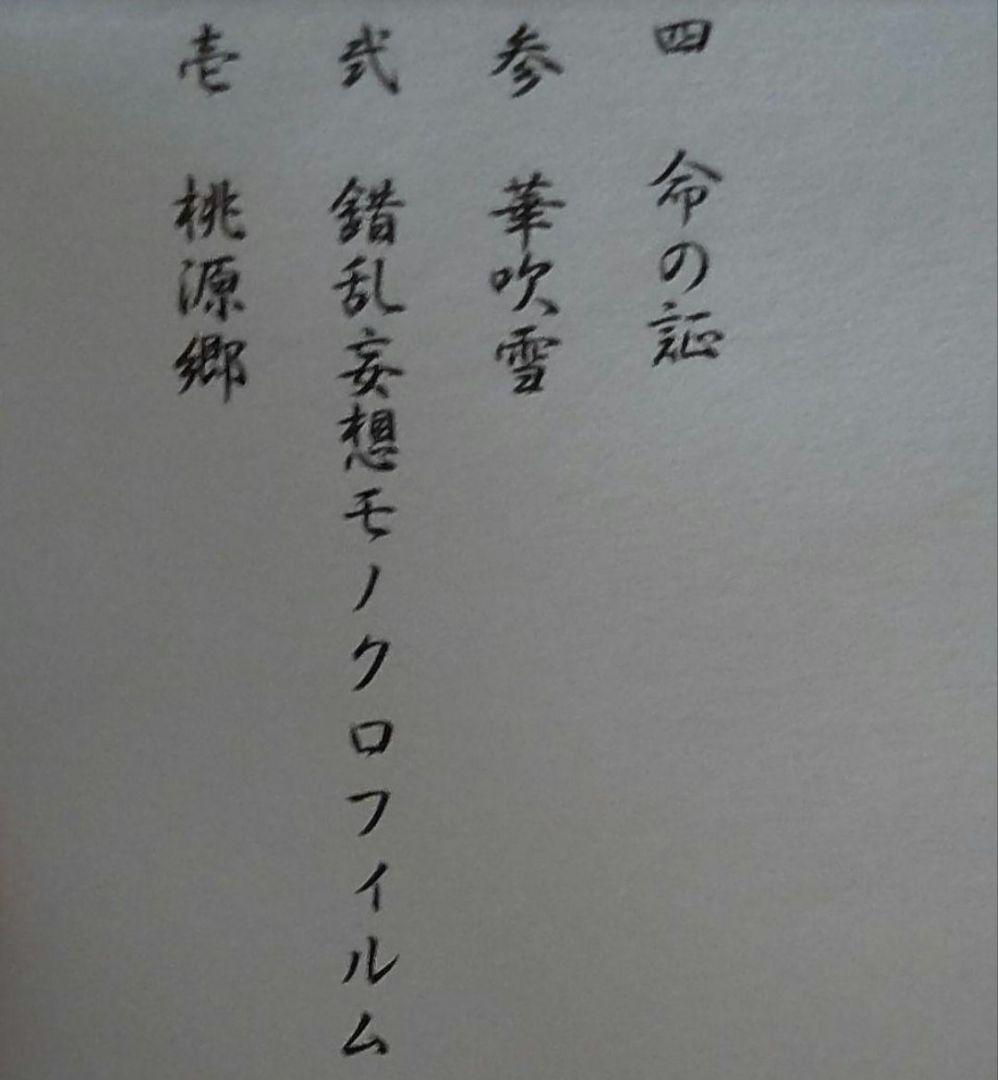 四 命の証
参 華吹雪
弐 錯乱妄想モノクロフィルム
壱 桃源郷